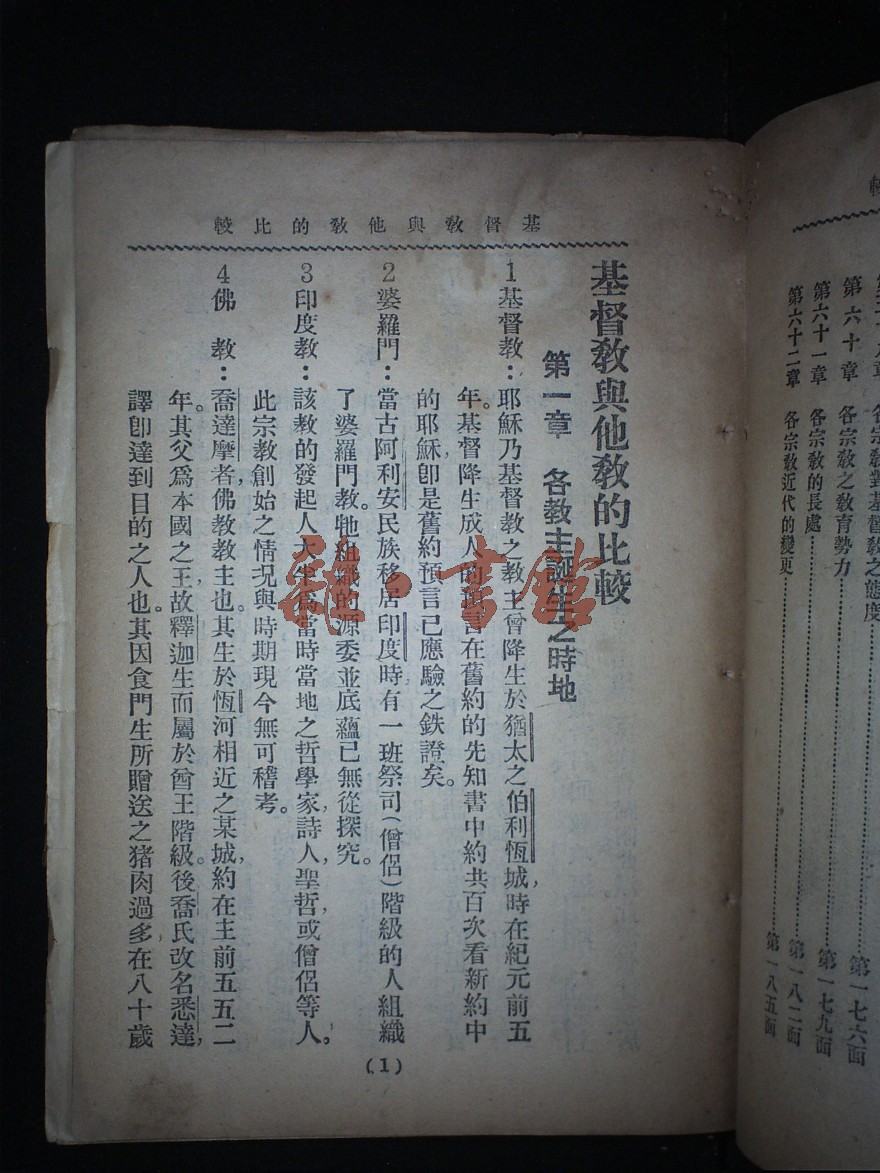 第六十章 各宗敎之敎育勢力 第一七六面
第六十一章 各宗敎的長處 第一七九面
第六十二章 各宗敎近代的變更 第一八二面
第一八五面
基督敎與他敎的比較
基督敎與他敎的比較
第一章 各敎主誕生之時地
1基督教：耶穌乃基督教之教主曾降生於猶太之伯利恆城，時在紀元前五
年。基督降生成人的預言在舊約的先知書中約共百次看新約中
的耶穌，卽是舊約預言已應驗之鉄證矣。
2婆羅門：當古阿利安民族移居印度時有一班祭司(僧侶)階級的人組織
了婆羅門教。牠組織的源委並底蘊已無從探究。
3印度教：該教的發起人大半爲當時當地之哲學家，詩人，聖哲或僧侶等人，
此宗教創始之情况與時期現今無可稽考。
4佛 教：喬達摩者，佛教教主也。其生於恆河相近之某城，約在主前五五二
年。其父爲本國之王，故釋迦生而屬於酋王階級。後喬氏改名悉達，
譯卽達到目的之人也。其因食門生所贈送之猪肉過多在八十歲
(1)
龍一書館